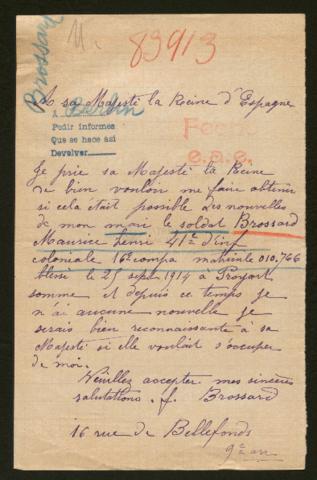 Brossard
83913
A sa Majesté la Reine d'Espagne
A Berlin
Pedir informes
Que se hace asi
Devolver
Je prie sa Majesté la Reine
de bien vouloir me faire obtenir
si cela était possible des nouvelles
de mon mari le soldat Brossard
Maurice Henri 41e d'inf
coloniale 16e compa matricule 010.766
blessé le 25 sept 1914 à Proyart
somme et depuis ce temps je
n'ai aucune nouvelle je
serais bien reconnaissante à sa
Majesté si elle voulait s'occuper
de moi.
Veuillez accepter mes sincères
salutations. f. Brossard
16 rue de Bellefonds
9e arr